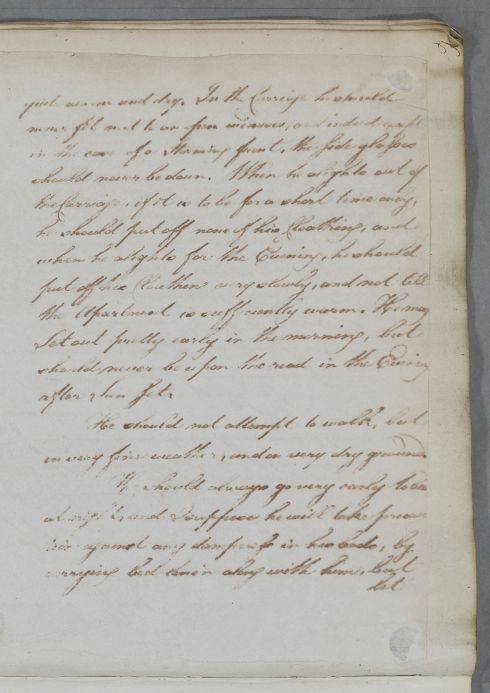 quite warm and dry. In the Carriage he should
never sit next to an open window, and indeed except
in the case of a Morning frent, the side glasses
should never be down. When he alights out of
the Carriage, if it is to be for a short time only,
he should put off none of his Cloathing, and
when he alights for the Evening, he should
put off his Cloathing very slowly, and not till
the Apartment is sufficiently warm. He may
Set out pretty early in the morning, but
should never be upon the road in the Evening
after Sun Set.
He should not attempt to walk, but
in very fine weather, and on very dry ground.
He should always go very early to bed
at night, and I suppose he will take precau
tion against any dampness in his beds, by
carrying bed linen along with him, but
let